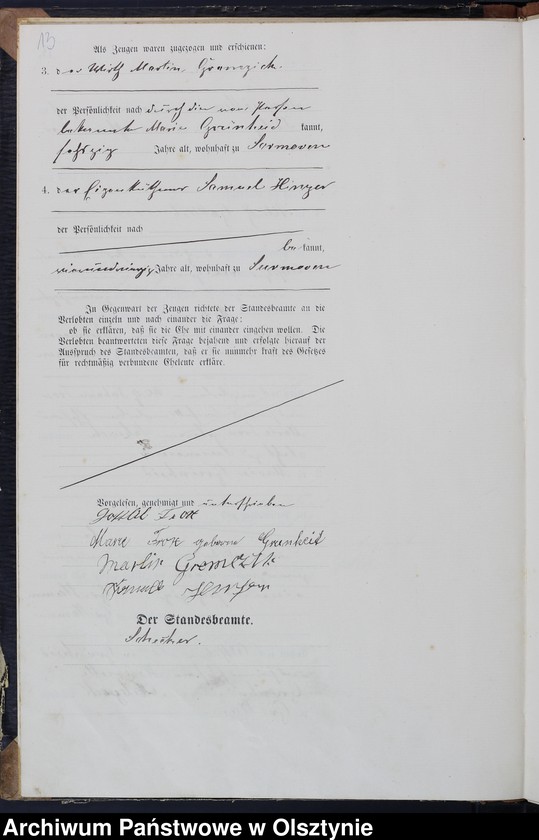 13
Als Zeugen waren zugezogen und erschienen:
3. der Wirth Martin Gromzick
der Persönlichkeit nach durch die von Person
bekannte Marie Grünheid kannt,
sechszig Jahre alt, wohnhaft zu Sormowen
4. der Eigenkäthner Samuel
der Persönlichkeit nach
be kannt,
vierunddreißig Jahre alt, wohnhaft zu Surmowen
In Gegenwart der Zeugen richtete der Standesbeamte an die
Verlobten einzeln und nach einander die Frage:
ob sie erklären, daß sie die Ehe mit einander eingehen wollen. Die
Verlobten beantworteten diese Frage bejahend und erfolgte hierauf der
Ausspruch des Standesbeamten, daß er sie nunmehr kraft des Gesetzes
für rechtmäßig verbundene Eheleute erkläre.
Vorgelesen, genehmigt und unterschrieben
Gottlieb
Marie geborne Grunheit
Martin
Der Standesbeamte.
Archiwum Państwowe w Olsztynie